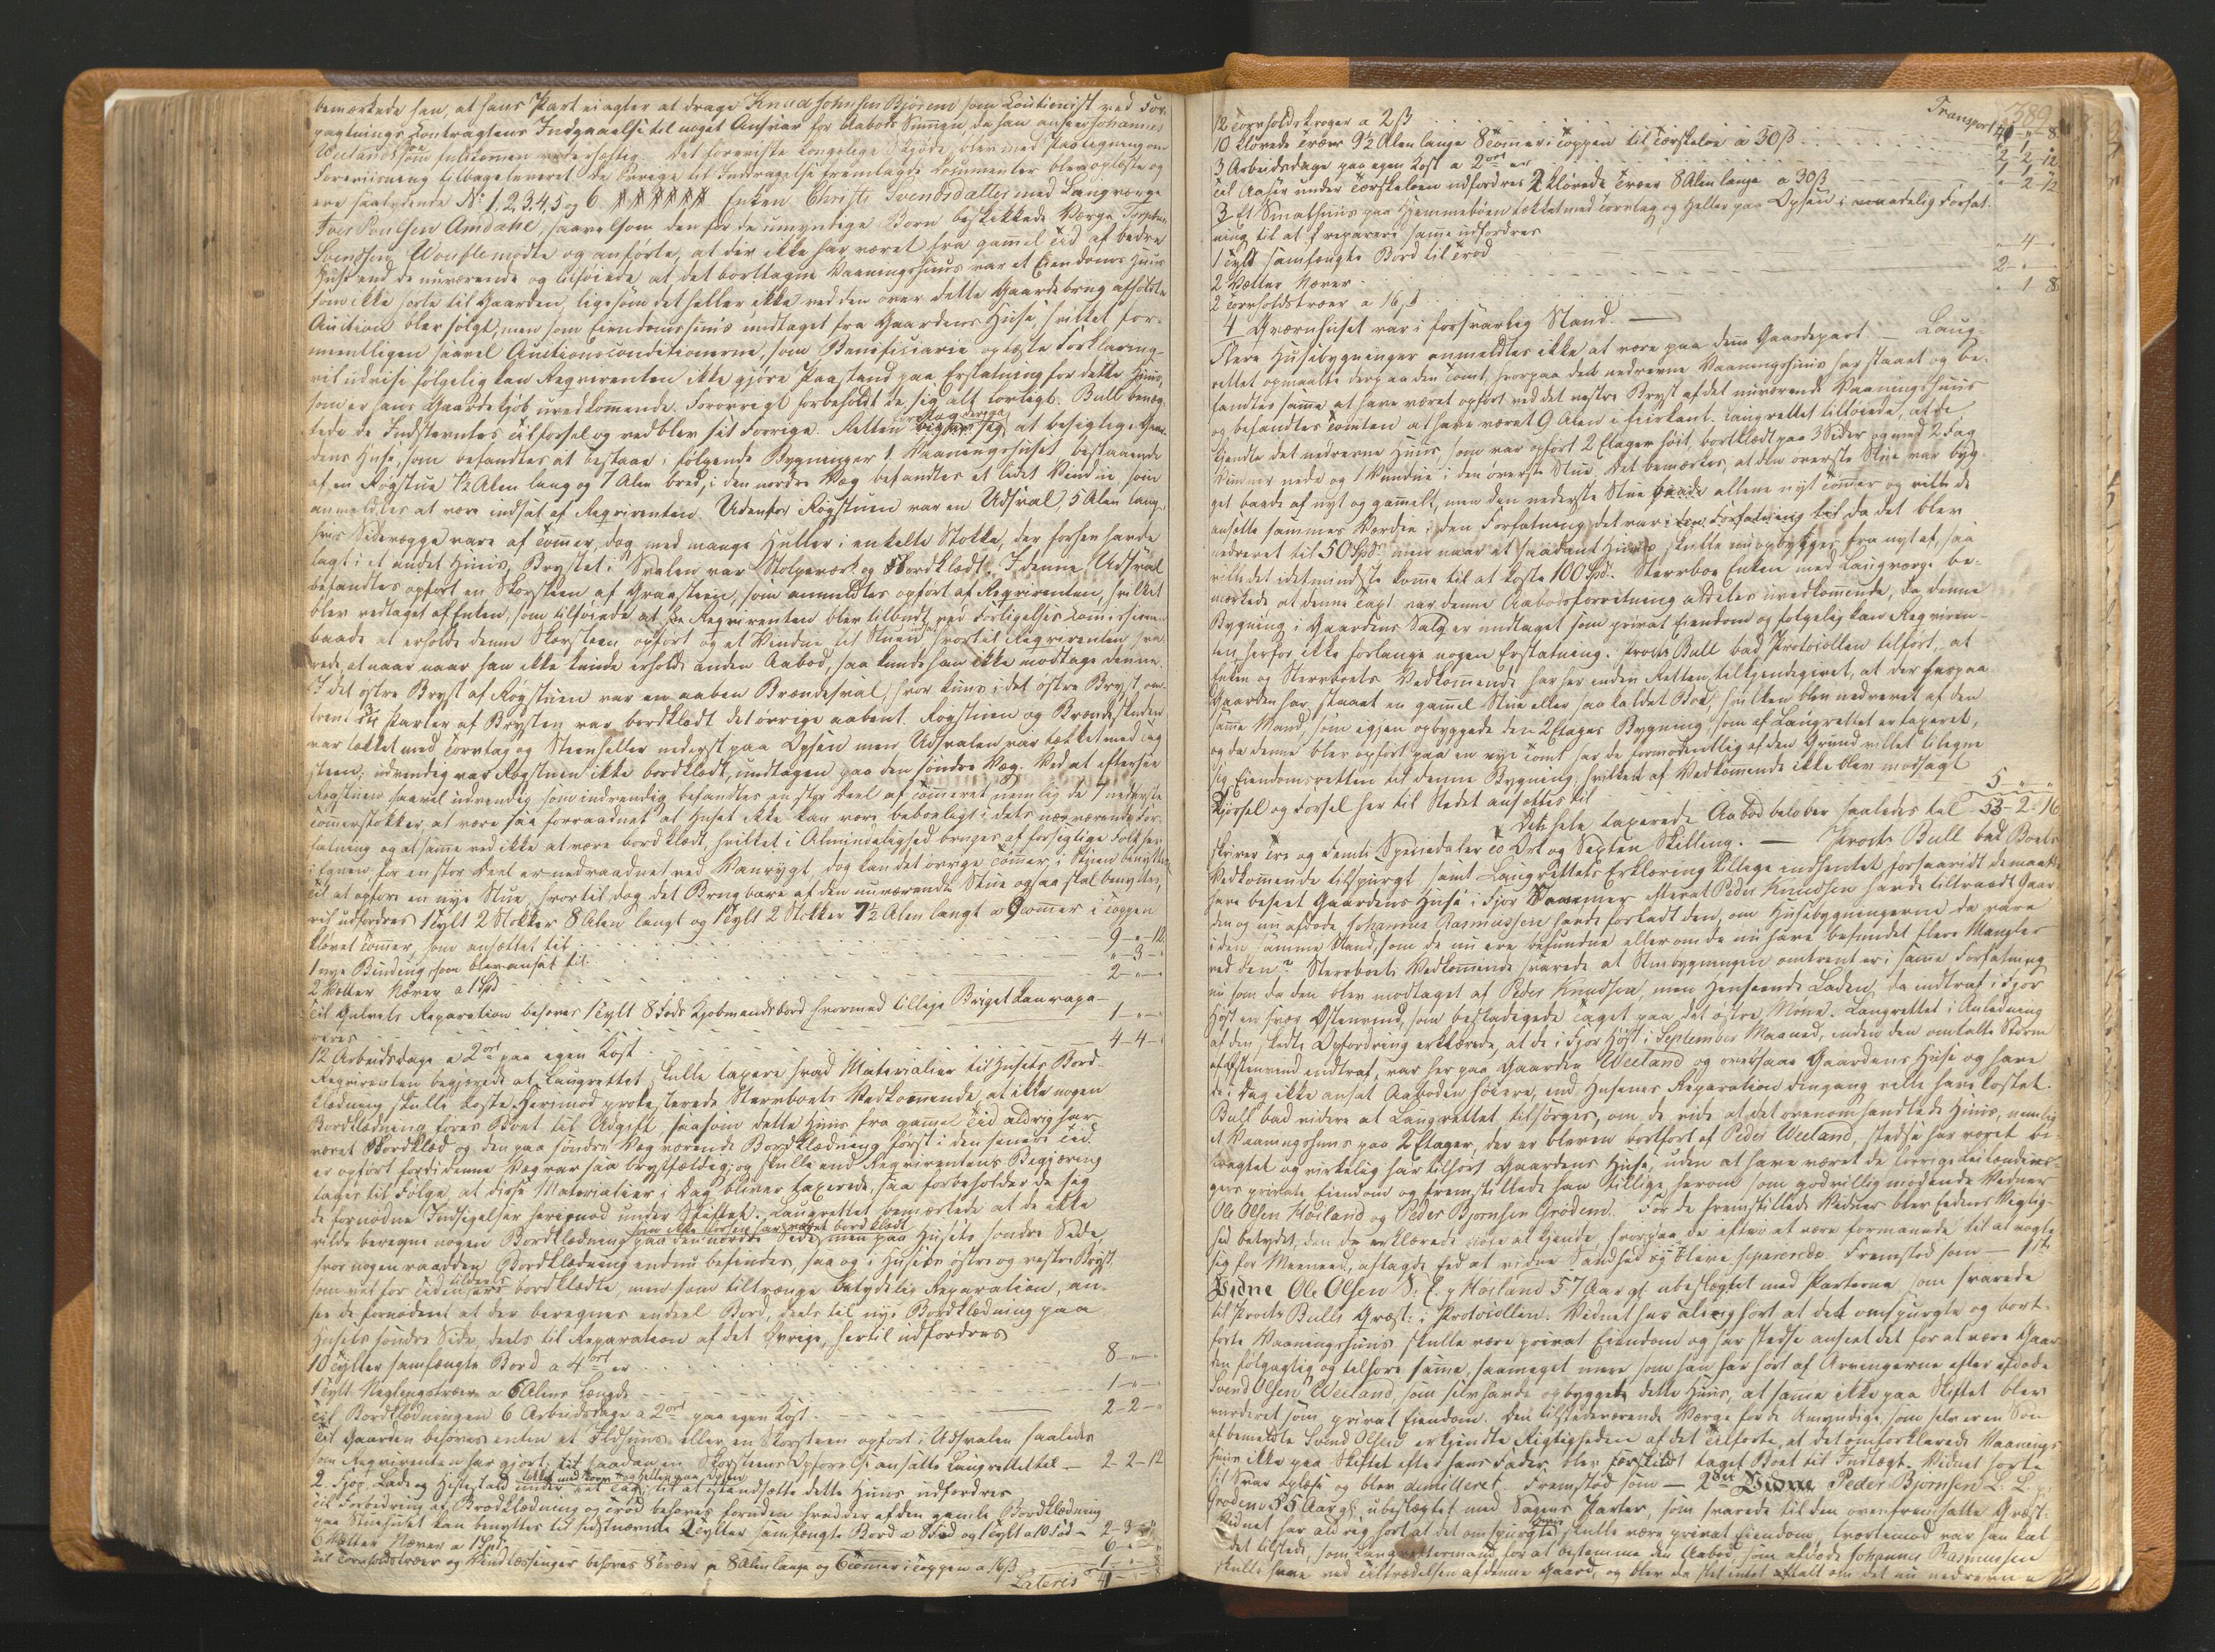 bemærkede han, at hans Part ei agter at drage Knud Johnsen Bjørem som Cautionist ved For-
pagtnings Contragtens Indgaaelse til noget Ansvar for Aabods Summen da han anseer Johannes
Weeland som fuldkommen vederhæftig. Det foreviste kongelige Skjøde, blev med Paategning om
Foreviisning tilbageleveret. De øvrige til Inddragelse fremlagde Documenter blev oplæste og
ere saalydende No 1, 2, 3, 4, 5 og 6. Enken Christi Svendsdatter med Laugværge
Ives Poulsen Amdahl, saavelsom den for de umyndige Børn beskikkede Værge Torsten
Svendsen mødte og anførte, at der ikke har været fra gammel Tid af bedre
Huse end de nuværende og tilføiede at det borttagne Vaaningshuus var et Eiendoms Huus
som ikke hørte til Gaarden, ligesom det heller ikke ved den over dette Gaardebrug afholdte
Auction blev solgt, men som Eiendomshuus undtaget fra Gaardens Huse, hvilket for-
mentligen saavel Auctionsconditionerne, som Beneficiarie oplæste Forklaring
vil udvise følgelig kan Reqvirenten ikke gjøre Paastand paa Erstatning for dette Huus,
som er hans Gaardekjøb uvedkommende. Forøvrigt forbeholdt de sig alt lovligt. Bull benæg-
tede de Indstævntes Tilførsel og vedblev sit Forrige. Retten at besigtige Gaar-
dens Huse, som befandtes at bestaae i følgende Bygninger 1. Vaaningshuset bestaaende
af en Røgstue 7½ Alen lang og 7 Alen bred, i den nordre Væg befandtes et lidet Vindue, som
anmeldtes at være indsat af Reqvirenten. Udenfor Røgstuen var en Udsval, 5 Alen lang,
hvis Sidevægge vare af Tømmer, dog med mange Huller i enkelte Stokke, der forhen havde
lagt i et andet Huus, Brystet i Svalen var Stolpeværk og Bordklædt. I denne Udsval
befandtes opført en Skorsteen af Graasteen, som anmeldtes opført af Reqvirenten, hvilket
blev vedtaget af Enken, som tilføiede at Reqvirenten blev tilbudt ved Forligelses Commissionen
baade at erholde denne Skorsteen opført og et Vindue til Stuen hvortil Reqvirenten sva-
rede, at naar han ikke kunde erholde anden Aabod, saa kunde han ikke modtage denne.
I det østre Bryst af Røgstuen var en aaben Brændesval, hvor kuns i det østre Bryst om-
trent ¾ Parter af Brysten var bordklædt det øvrige aabent. Røgstuen og Brændeskuden
var tækket med Torvtag og Steenheller nederst paa Opsen men Udsvalen var tækket med Tag-
steen; udvendig var Røgstuen ikke bordklædt, undtagen paa den søndre Væg. Ved at eftersee
Røgstuen saavel udvendig som indvendig befandtes en stor Deel af Tømmeret nemlig de 7 nederste
Tømmerstokke, at være saa forraadnet at Huset ikke kan være beboeligt i dets nærværende For-
fatning og at samme ved ikke at være bordklædt, hvilket i Almindelighed bruges af forsigtige Folk her
i Egnen for en stor Deel er nedraadnet ved Vanrygt, dog kan det øvrige Tømmer i Stuen benyttes
til at opføre en nye Stue, hvortil dog det Brugbare af den nuværende Stue ogsaa skal benyttes,
vil udfordres 1 Tylt 2 Stokker 8 Alen langt og 1 Tylt 2 Stokker 7½ Alen langt a 9 Tommer i Toppen
kløvet Tømmer, som ansættes til 9 - " - 12
1 nye Binding, som blev ansat til " - 3 - "
2 Vætter Næver a 1 Spd 2 - " - "
Til Gulvets Reparation behøves 1 Tylt 8 Fods Kjøbmandsbord hvormed tillige Briget kan repa-
reres 1 - " - "
12 Arbeidsdage a 2 ort paa egen Kost 4 - 4 - "
Reqvirenten begjærede at Laugrettet skulle taxere hvad Materialier til Husets Bord-
klædning skulle koste. Herimod protesterede Stervboets Vedkommende, at ikke nogen
Bordklædning føres Boet til Udgift, saasom dette Huus fra gammel Tid aldrig har
været Bordklæd og den paa søndre Væg værende Bordklædning først i den senere Tid
er opført fordi denne Væg var saa brystfældig; og skulle end Reqvirentens Begjæring
tages til Følge, at disse Materialier i Dag bliver taxerede, saa forbeholder de sig
de fornødne Indsigelser herimod under Skiftet. Laugrettet bemærkede at de ikke
vilde beregne nogen Bordklædning paa den nordre Side, som ikke forhen har været bordklædt men paa Husets søndre Side,
hvor nogen raadden Bordklædning endnu befindes, saa og i Husets østre og vestre Bryst,
som vel for Tiden er tildeels bordklædte, men som tiltrænge betydelig Reparation, an-
see de fornødent at der beregnes endeel Bord, deels til nye Bordklædning paa
Husets søndre Side, deels til Reparation af det Øvrige, hertil udfordres
10 Tylter samfængte Bord a 4 ort er 8 - " - "
1 Tylt Neglingstræer a 6 Alens Længde 1 - " - "
Til Bordklædningen 6 Arbeidsdage a 2 ort paa egen Kost 2 - 2 - "
Til Gaarden behøves enten et Ildhuus eller en Skorsteen opført i Udsvalen saaledes
som Reqvirenten har gjort; til saadan en Skorsteens Opførelse ansatte Laugrettet til 2 - 2 - 12
2. Fjøs, Lade og Hestestald under eet Tag, tækket med Torv og Heller paa Opsen til at istandsætte dette Huus udfordres
Til Forbedring af Bordklædning og Trod behøves foruden hvad der af den gamle Bordklædning
paa Stuehuset kan benyttes til sidstnævnte 2 Tylter samfængte Bord a og 1 Tylt a 10 Fod 2 - 3 -
6 Vætter Næver a 1 Spd 6 - " - "
Til Torvholdstræer og Vindlæssinger behøves 8 Træer a 8 Alen lange og 6 Tommer i Toppen a 16 ß 1 - " - 8
Lateris 41 - " - 8
389.
Transport 41 - " - 8
12 Torvholdskroger a 2 ß " - 1 - "
10 kløvede Træer 9½ Alen lange 8 Tommer i Toppen til Tærskeloe a 30 ß 2 - 2 - 12
3 Arbeidsdage paa egen Kost a 2 ort er 1 - 1 - "
Til Aaser under Tærskeloen udfordres 2 kløvede Træer 8 Alen lange a 30 ß " - 2 - 12
3. Et Smalehuus paa Hjemmebøen tækket med Torvtag og Heller paa Opsen i maadelig Forfat-
ning til at reparere samme udfordres
1 Tylt samfængte Bord til Trod " - 4 - "
2 Vætter Næver 2 - " - "
2 Torvholdstræer a 16 ß " - 1 - 8
4 Qværnhuset var i forsvarlig Stand.
Flere Husebygninger anmeldtes ikke at være paa denne Gaardepart. — Laug-
rettet opmaalte derpaa den Tomt, hvorpaa det nedrevne Vaaningshuus har staaet og be-
fandtes samme at have været opført ved det vestre Bryst af det nuværende Vaaningshuus
og befandtes Tomten at have været 9 Alen i Fiirkant. Laugrettet tilføiede, at de
kjendte det nedrevne Huus, som var opført 2 Etager høit, bortklædt paa 3 Sider og med 2 Fag
Vinduer nede og 1 Vindue i den øverste Stue. Det bemærkes, at den øverste Stue var byg-
get baade af nyt og gammelt, men den nederste Stue allene nyt Tømmer og vilde de
ansætte sammes Værdie i den Forfatning det var da det blev
nedrevet til 50 Spd. men naar et saadant Huus skulle nu opbygges fra nyt af, saa
vilde det idetmindste komme til at koste 100 Spd. Stervboe Enken med Laugværge be-
mærkede at denne Taxt var denne Aabodsforretning aldeles uvedkommende, da denne
Bygning i Gaardens Salg er undtaget som privat Eiendom og følgelig kan Reqviren-
ten herfor ikke forlange nogen Erstatning. Procts Bull bad Protocollen tilført, at
Enken og Stervboets Vedkommende har her inden Retten tilkjendegivet, at der her paa
Gaarden har staaet en gammel Stue eller saa kaldet Boe, hvilken blev nedrevet af den
samme Mand, som igjen opbyggede den 2 Etages Bygning, som af Laugrettet er taxeret,
og da denne blev opført paa en nye Tomt har de formodentlig af den Grund villet tilegne
sig Eiendomsretten til denne Bygning; hvilket af Vedkommende ikke blev modsagt
Kjørsel og Førsel her til Stedet ansættes til 5 - " - "
Det hele taxerede Aabod beløber saaledes til 53 - 2 - 16
skriver Tre og Femti Speciedaler To Ort og Sexten Skilling. — Procts Bull bad Boets
Vedkommende tilspurgt samt Laugrettets Erklæring tillige indhentet forsaavidt de maatte
have beseet Gaardens Huse i Fjor Sommer efterat Peder Knudsen havde tiltraadt Gaar-
den og nu afdøde Johannes Rasmussen havde forladt den, om Husebygningerne da vare
i den samme Stand, som de nu ere befundne eller om de nu have befundet flere Mangler
ved den? Stervboets Vedkommende svarede at Stuebygningen omtrent er i samme Forfatning
nu som da den blev modtaget af Peder Knudsen, men henseende Laden, da indtraf i Fjor
Høst en svær Østenvind, som beskadigede Taget paa det østre Møne. Laugrettet i Anledning
af den skedte Opfordring erklærede, at de i Fjor Høst i September Maaned, inden den omtalte Storm
af Østenvind indtraf, var her paa Gaarden Weeland og oversaae Gaardens Huse og have
de i Dag ikke ansat Aaboden høiere, end Husenes Reparation dengang vilde have kostet.
Bull bad videre at Laugrettet tilspørges, om de vide at det ovenomhandlede Huus, nemlig
et Vaaningshuus paa 2 Etager, der er bleven bortført af Peder Weeland, stedse har været be-
tragtet og virkelig har tilhørt Gaardens Huse, uden at have været de forrige Leilændin-
gers private Eiendom og fremstillede han tillige herom som godvillig mødende Vidner
Ole Olsen Høiland og Peder Bjørnsen Grødem. For de fremstillede Vidner blev Eedens Vigtig-
hed betydet, den de erklærede nøie at kjende, hvorpaa de efter at være formanede til at vogte
sig for Meeneed, aflagde Eed at vidne Sandhed og bleve separerede. Fremstod som — 1ste
Vidne Ole Olsen L: L: p: Høiland 57 Aar gl. ubeslægtet med Parterne som svarede
til Procts Bulls Qvæst: i Protocollen. Vidnet har aldrig hørt at det omspurgte og bort-
førte Vaaningshuus skulle være privat Eiendom og har stedse anseet det for at være Gaar-
den følgagtig og tilhøre samme, saameget mere som han har hørt af Arvingerne efter afdøde
Svend Olsen Weeland, som selv havde opbygget dette Huus, at samme ikke paa Skiftet blev
vurderet som privat Eiendom. Den tilstedeværende Værge for de Umyndige, som selv er en Søn
af bemeldte Svend Olsen erkjendte Rigtigheden af det Tilførte, at det omforklarede Vaanings-
huus ikke paa Skiftet efter hans Fader blev særskildt taget Boet til Indtægt. Vidnet hørte
sit Svar oplæse og blev demitteret. Fremstod som — 2det Vidne Peder Bjørnsen L. L. p:
Grødem 55 Aar gl. ubeslægtet med Sagens Parter, som svarede til den ovenfremsatte Qvæst:
Vidnet har aldrig hørt at det omspurgte Huus skulle være privat Eiendom, tværtimod var han kal-
det tilstede, som Laugrettesmand for at bestemme den Aabod, som afdøde Johannes Rasmussen
skulle have ved Tiltrædelsen af denne Gaard, og blev da slet intet omtalt om det nu nedrevne